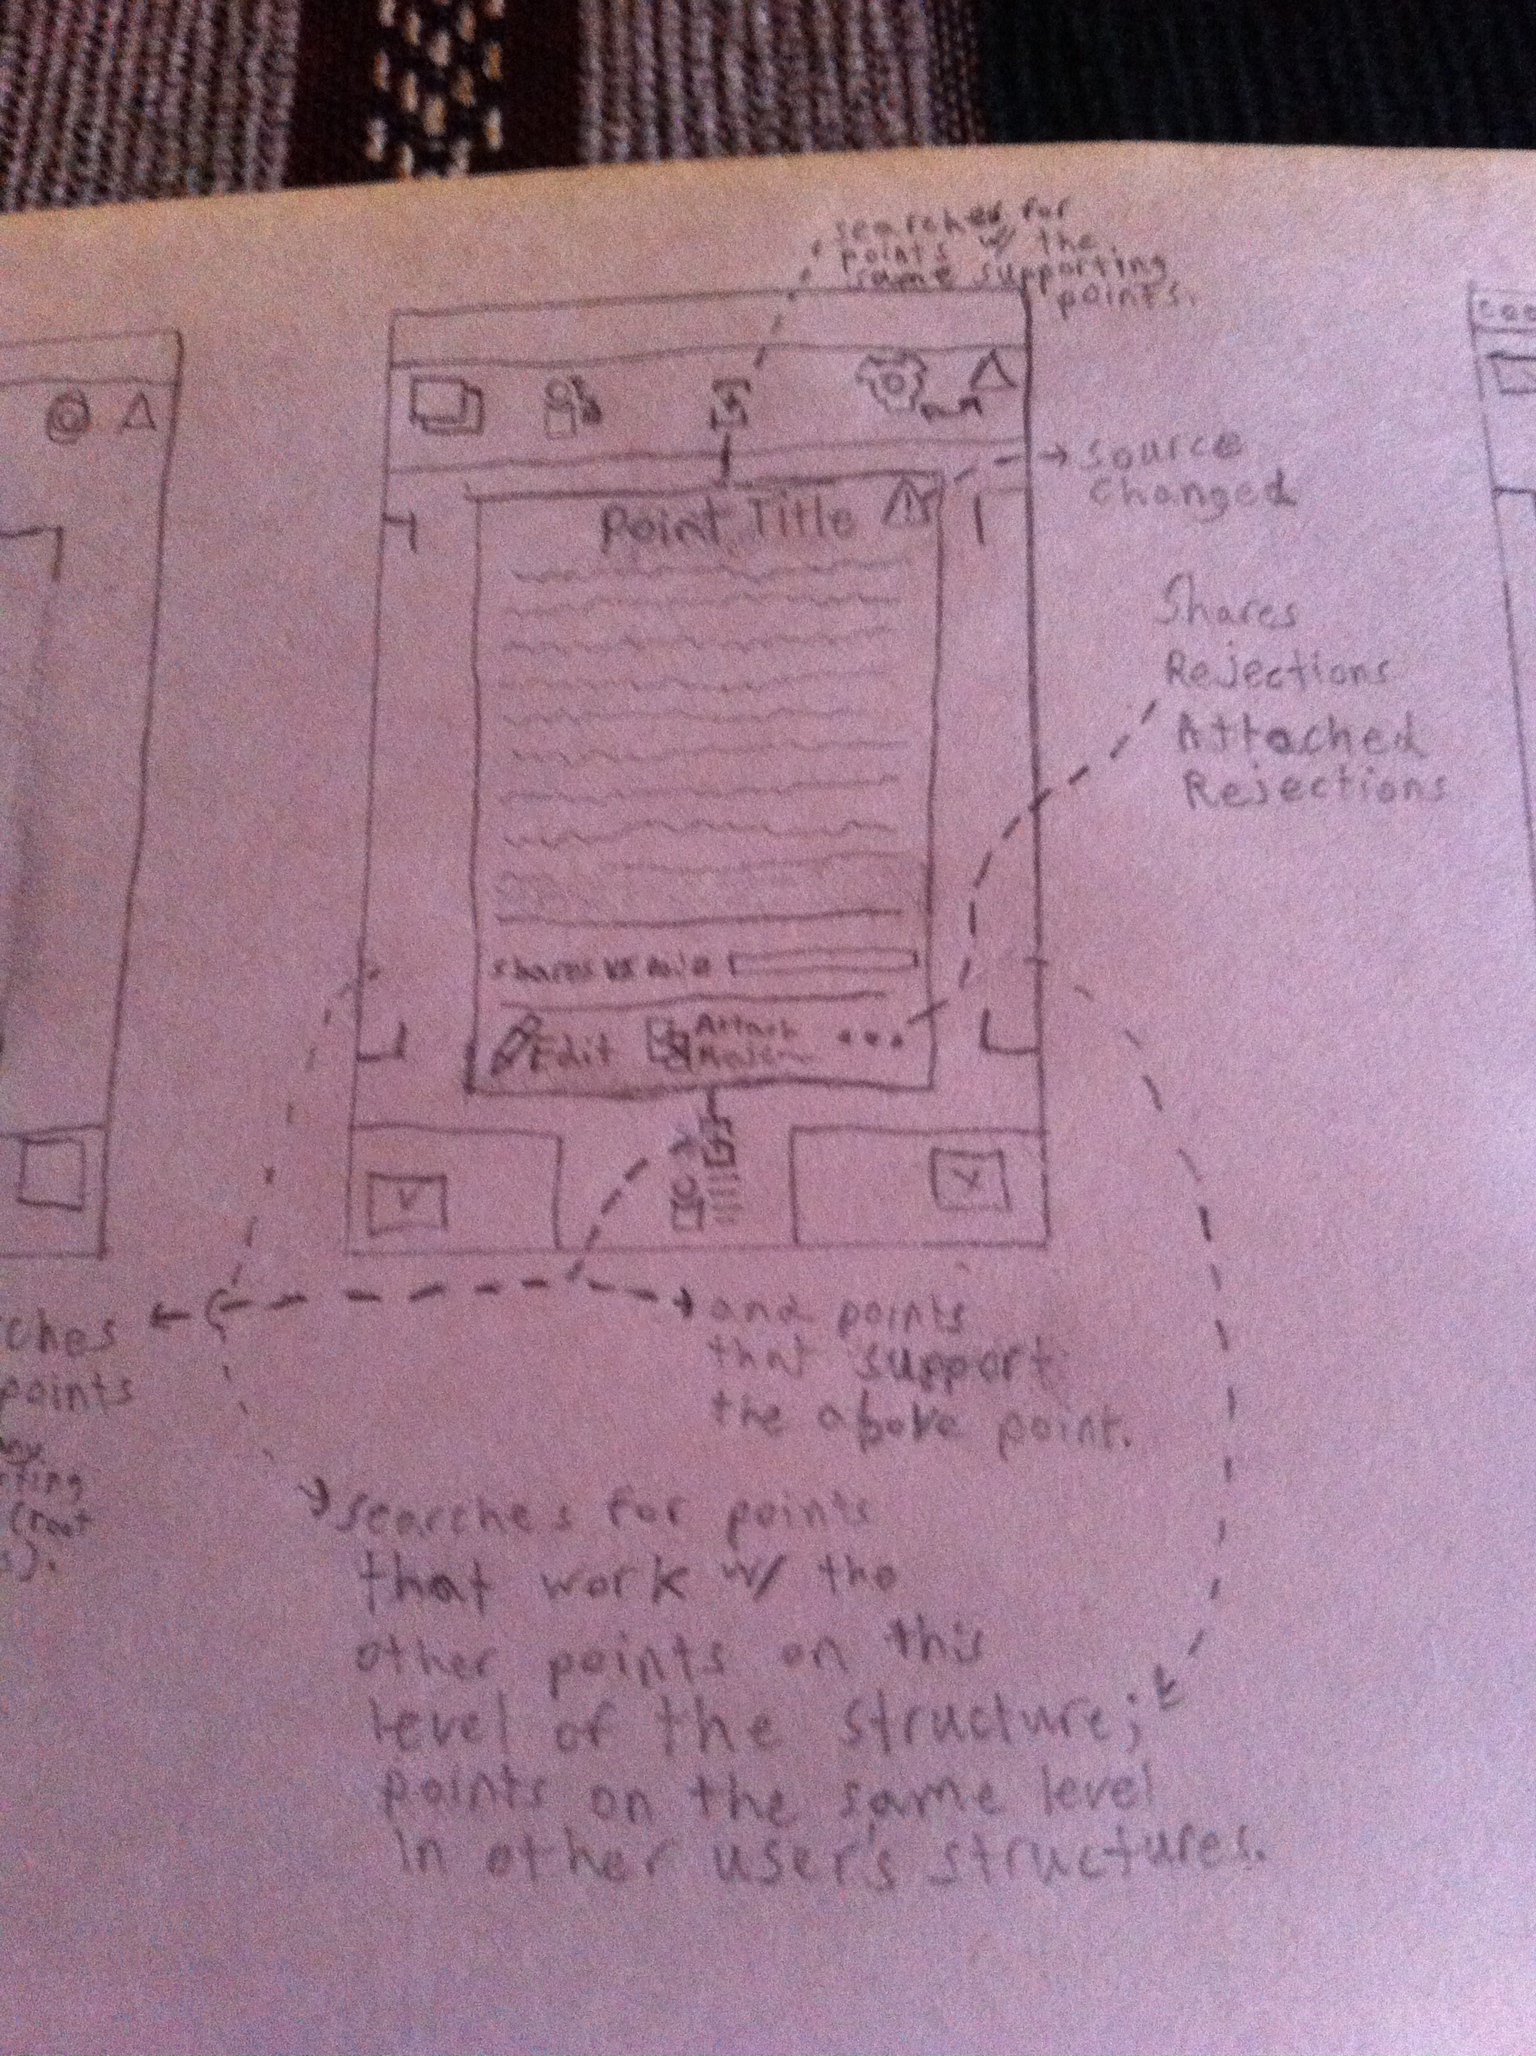 searches for
points w/ the
same supporting
points.
Point Title
source
changed
Shares
Rejections
Attached
Rejections
shares vs
Edit
Attach
ches
points
and points
that support
the above point.
ting
(root
s).
searches for points
that work w/ the
other points on this
level of the structure;
points on the same level
in other user's structures.